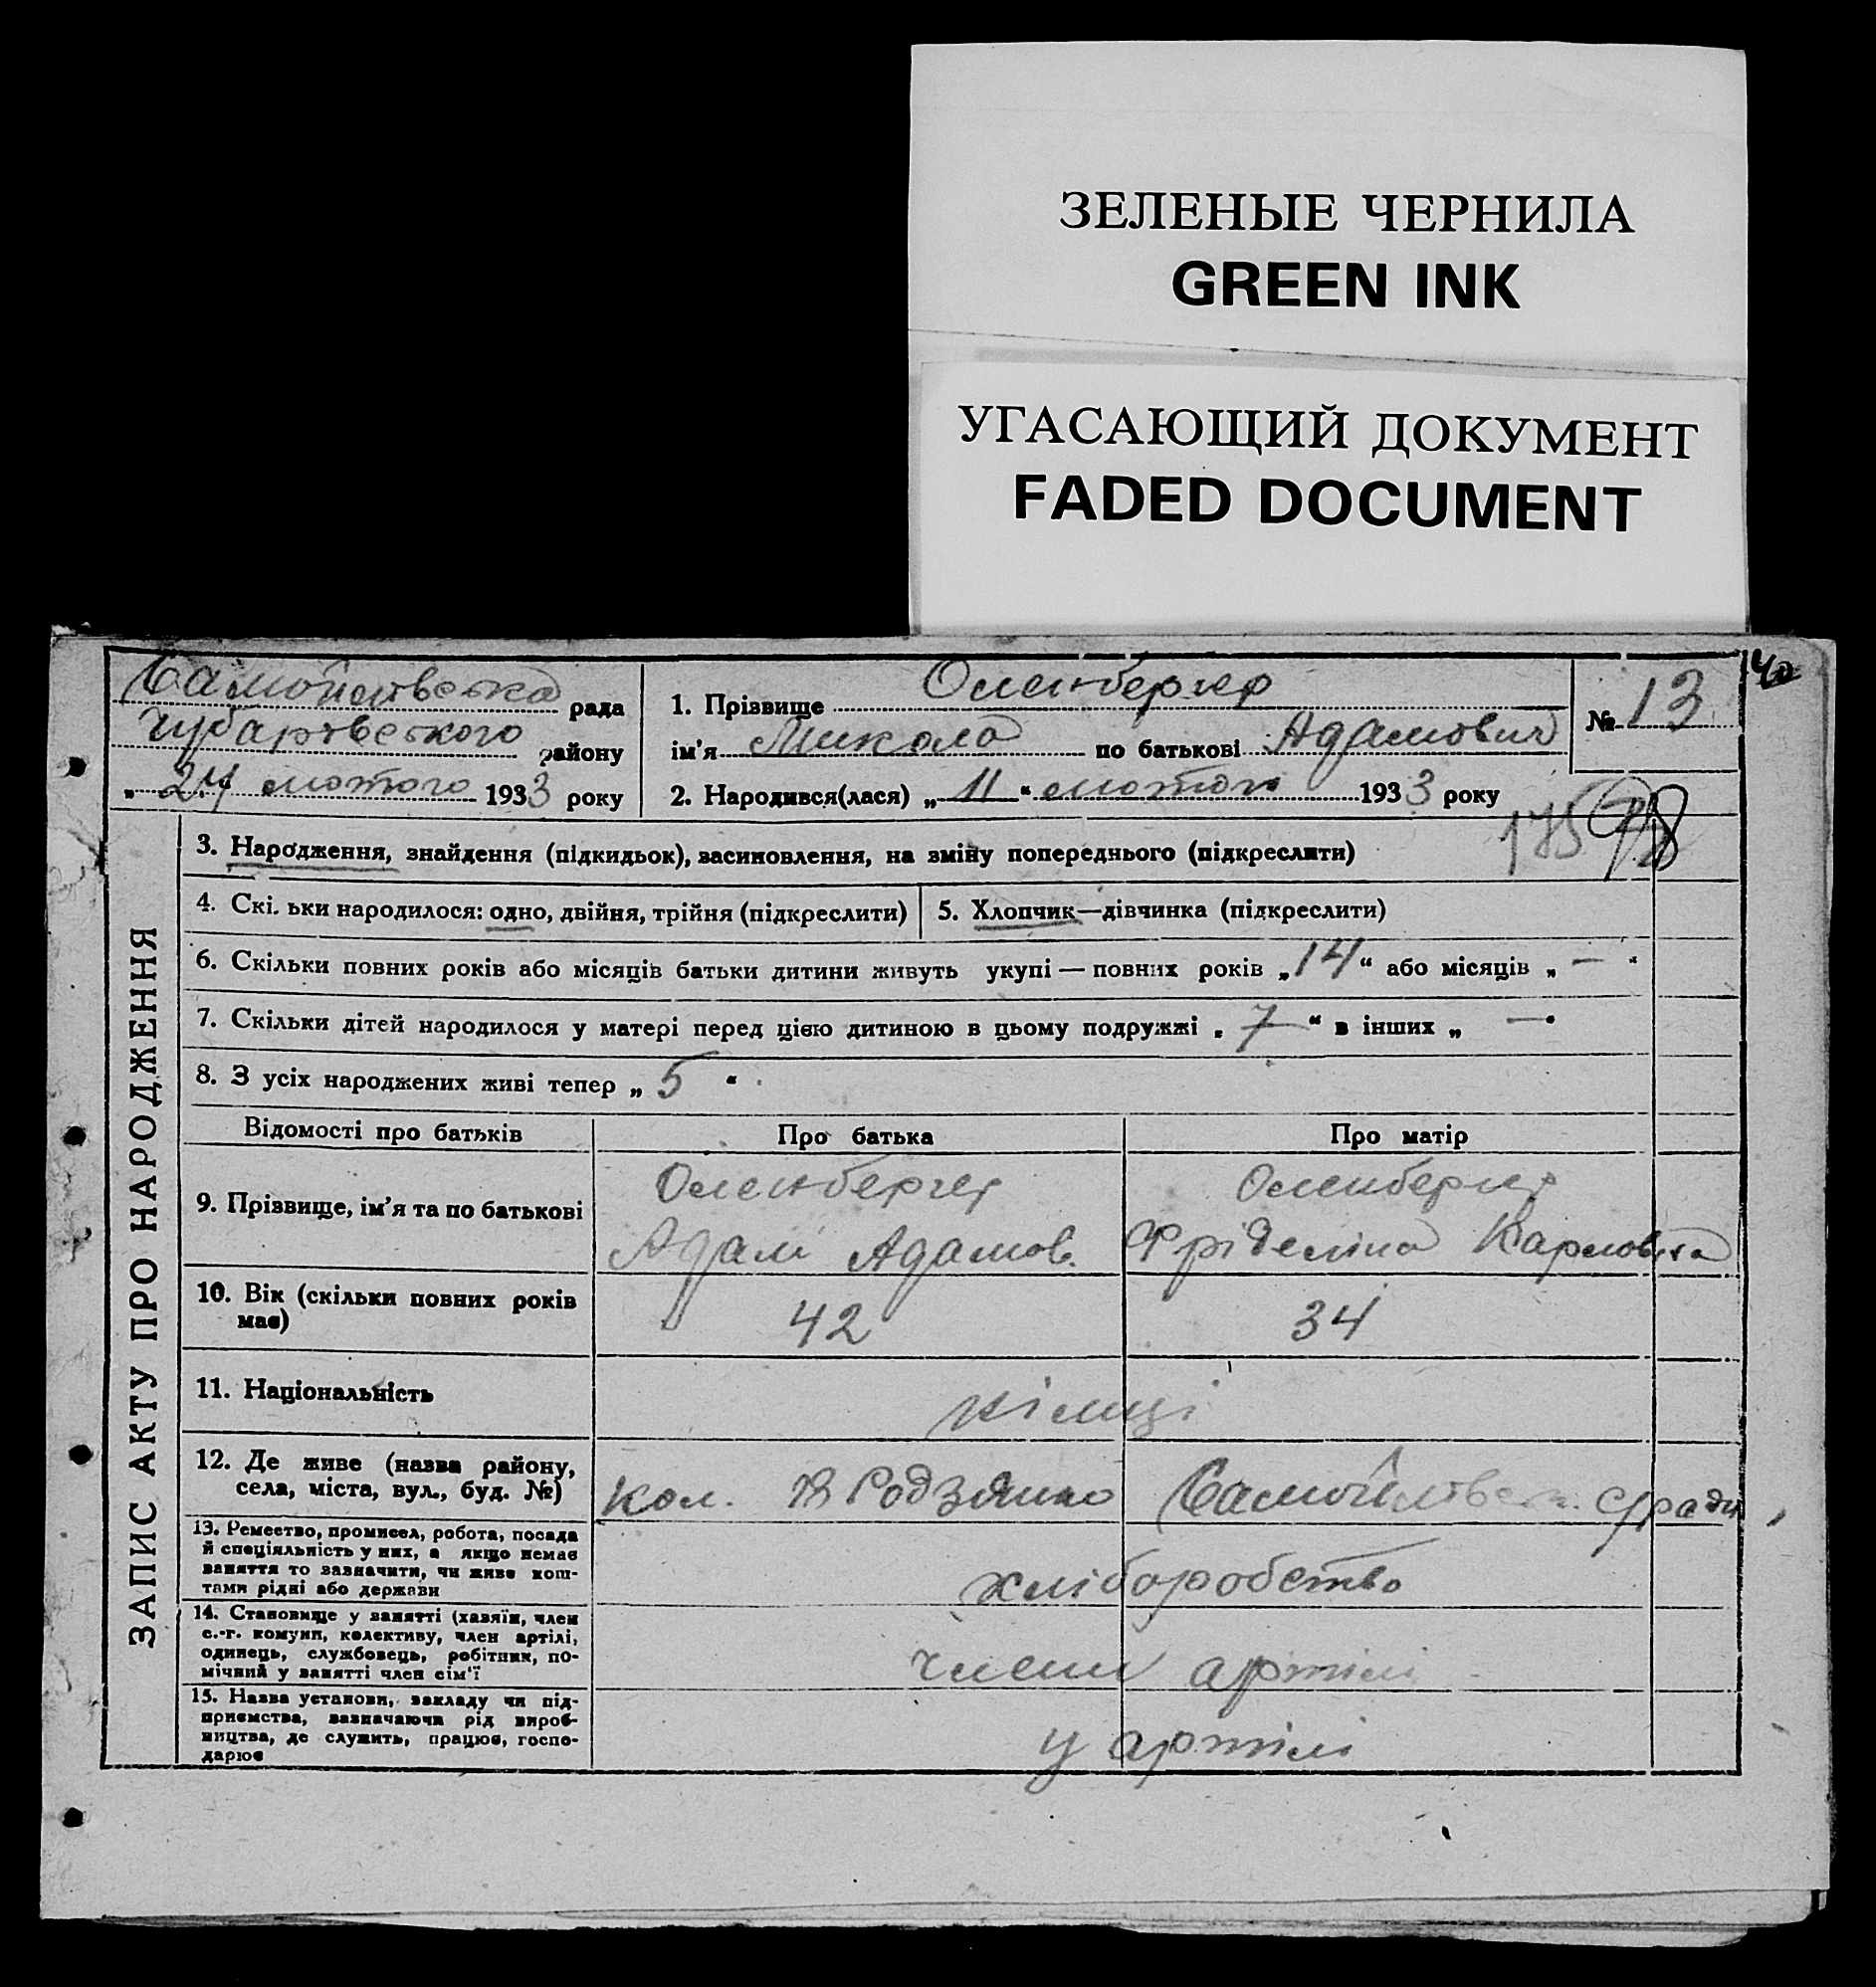 ЗЕЛЕНЫЕ ЧЕРНИЛА
GREEN INK
УГАСАЮЩИЙ ДОКУМЕНТ
FADED DOCUMENT
рада
Чубарівського району
„ 24 лютого 1933 року
1. Прізвище Оленбергер
ім'я Микола по батькові Адамович
2. Народився(лася) „ 11 “ лютого 1933 року
№ 13
40
175
ЗАПИС АКТУ ПРО НАРОДЖЕННЯ
3. Народження, знайдення (підкидьок), засиновлення, на зміну попереднього (підкреслити)
4. Скі. ьки народилося: одно, двійня, трійня (підкреслити)
5. Хлопчик—дівчинка (підкреслити)
6. Скільки повних років або місяців батьки дитини живуть укупі — повних років „ 14 “ або місяців „ — “
7. Скільки дітей народилося у матері перед цією дитиною в цьому подружжі „ 7 “ в інших „ —
8. З усіх народжених живі тепер „ 5 “
Відомості про батьків
Про батька
Про матір
9. Прізвище, ім'я та по батькові
Оленбергер
Адам Адамов.
Оленбергер
Фріделіна Карловна
10. Вік (скільки повних років
має)
42
34
11. Національність
німці
12. Де живе (назва району,
села, міста, вул., буд. №)
кол. Родзянко
с/ради
13. Ремество, промисел, робота, посада
й спеціяльність у них, а якщо немає
заняття то зазначити, чи живе кош-
тами рідні або держави
хліборобство
14. Становище у занятті (хазяїн, член
с.-г. комуни, колективу, член артілі,
одинець, службовець, робітник, по-
мічний у занятті член сім'ї
члени артілі
15. Назва установи, закладу чи під-
приємства, зазначаючи рід вироб-
ництва, де служить, працює, госпо-
дарює
у артілі